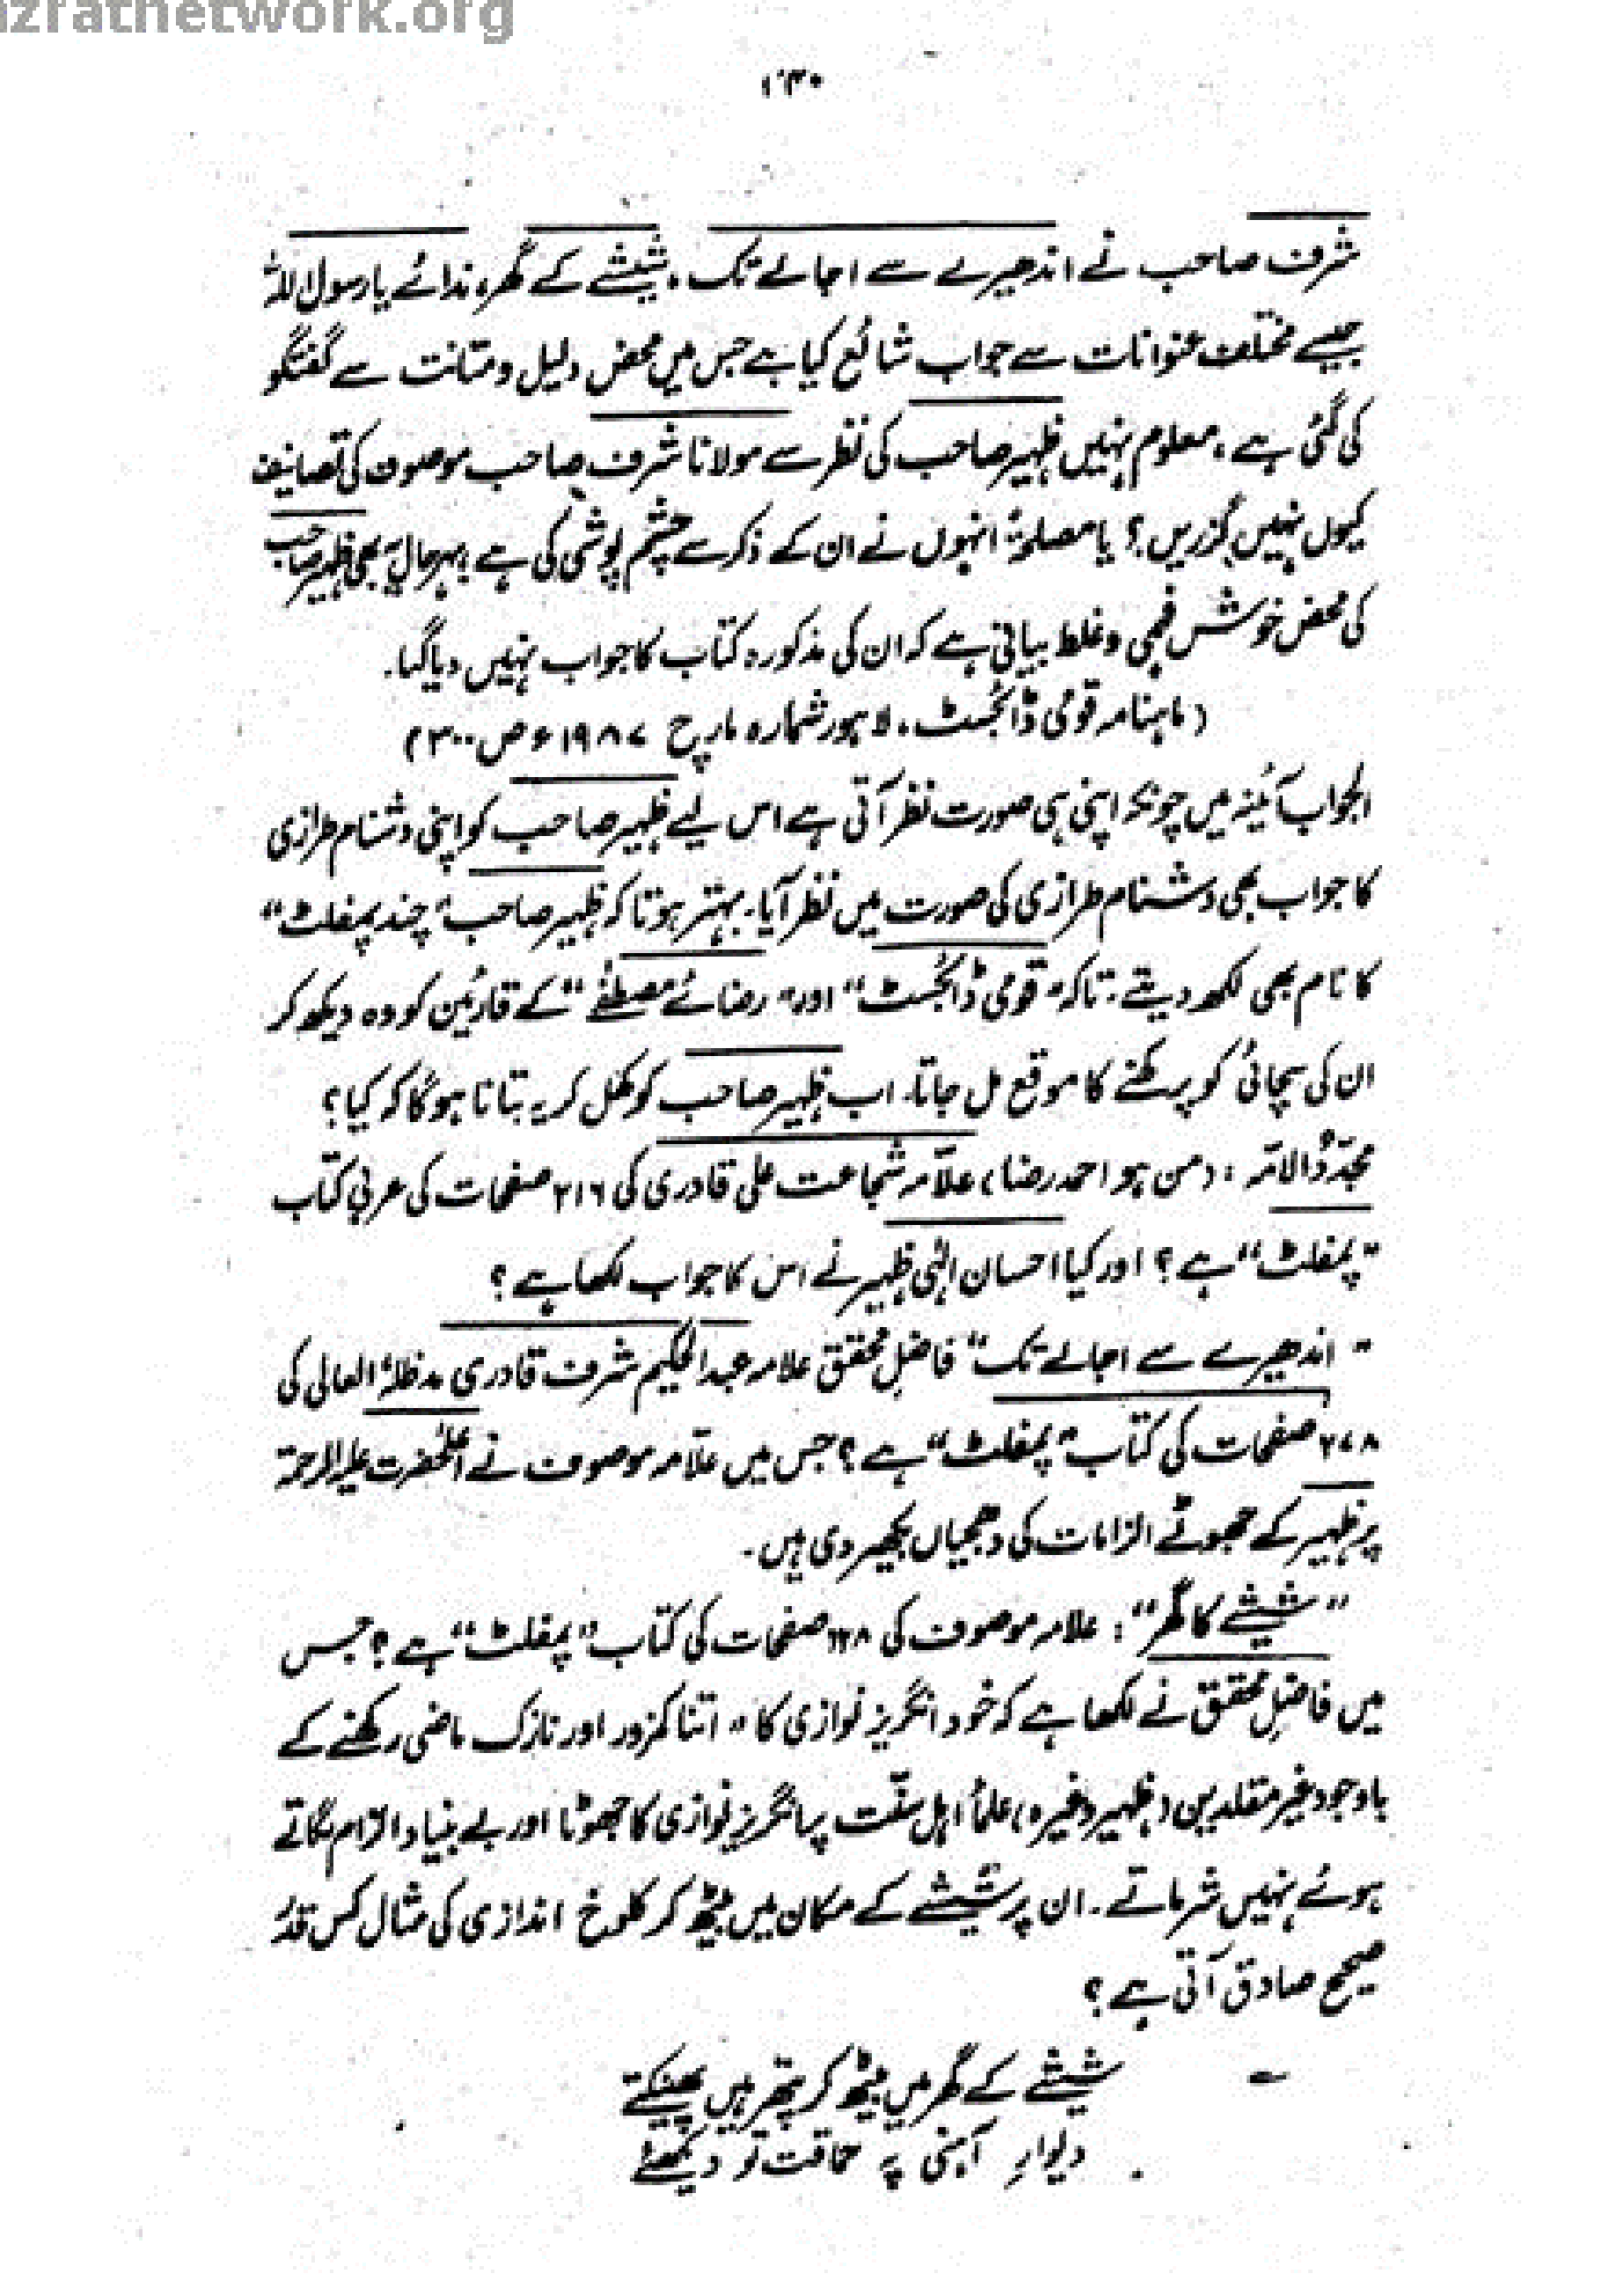 azratnetwork.org
۱۳۰
شرف صاحب نے اندھیرے سے اجالے تک، شیشے کے گھر، ندائے یارسول اللہ
جیسے مختلف عنوانات سے جواب شائع کیا ہے جس میں محض دلیل و متانت سے گفتگو
کی گئی ہے، معلوم نہیں ظہیر صاحب کی نظر سے مولانا شرف صاحب موصوف کی تصانیف
کیوں نہیں گزریں؟ یا مصلحۃً انہوں نے ان کے ذکر سے چشم پوشی کی ہے بہرحال یہ بھی ظہیر صاحب
کی محض خوش فہمی و غلط بیانی ہے کہ ان کی مذکورہ کتاب کا جواب نہیں دیا گیا۔
(ماہنامہ قومی ڈائجسٹ، لاہور شمارہ مارچ ۱۹۸۷ء ص ۳۰۰)
الجواب آئینہ میں چونکہ اپنی ہی صورت نظر آتی ہے اس لیے ظہیر صاحب کو اپنی دشنام طرازی
کا جواب بھی دشنام طرازی کی صورت میں نظر آیا۔ بہتر ہوتا کہ ظہیر صاحب "چند پمفلٹ"
کا نام بھی لکھ دیتے۔ تاکہ "قومی ڈائجسٹ" اور "رضائے مصطفٰے" کے قارئین کو وہ دیکھ کر
ان کی سچائی کو پرکھنے کا موقع مل جاتا۔ اب ظہیر صاحب کو کھل کر یہ بتانا ہوگا کہ کیا؟
مجدّدُ الامّہ: (من ہو احمد رضا) علاّمہ شجاعت علی قادری کی ۲۱۶ صفحات کی عربی کتاب
"پمفلٹ" ہے؟ اور کیا احسان الٰہی ظہیر نے اس کا جواب لکھا ہے؟
"اندھیرے سے اجالے تک" فاضل محقق علامہ عبدالحکیم شرف قادری مدظلہٗ العالی کی
۲۷۸ صفحات کی کتاب "پمفلٹ" ہے؟ جس میں علاّمہ موصوف نے اعلٰحضرت علیہ الرحمۃ
پر ظہیر کے جھوٹے الزامات کی دھجیاں بکھیر دی ہیں۔
"شیشے کا گھر": علامہ موصوف کی ۱۲۸ صفحات کی کتاب "پمفلٹ" ہے؟ جس
میں فاضل محقق نے لکھا ہے کہ خود انگریز نوازی کا "اتنا کمزور اور نازک ماضی رکھنے کے
باوجود غیر مقلدین (ظہیر وغیرہ) علمأ اہل سنّت پر انگریز نوازی کا جھوٹا اور بے بنیاد الزام لگاتے
ہوئے نہیں شرماتے۔ ان پر شیشے کے مکان میں بیٹھ کر کلوخ اندازی کی مثال کس قدر
صحیح صادق آتی ہے؟
شیشے کے گھر میں بیٹھ کر پتھر ہیں پھینکتے
دیوارِ آہنی پر حماقت تو دیکھئے